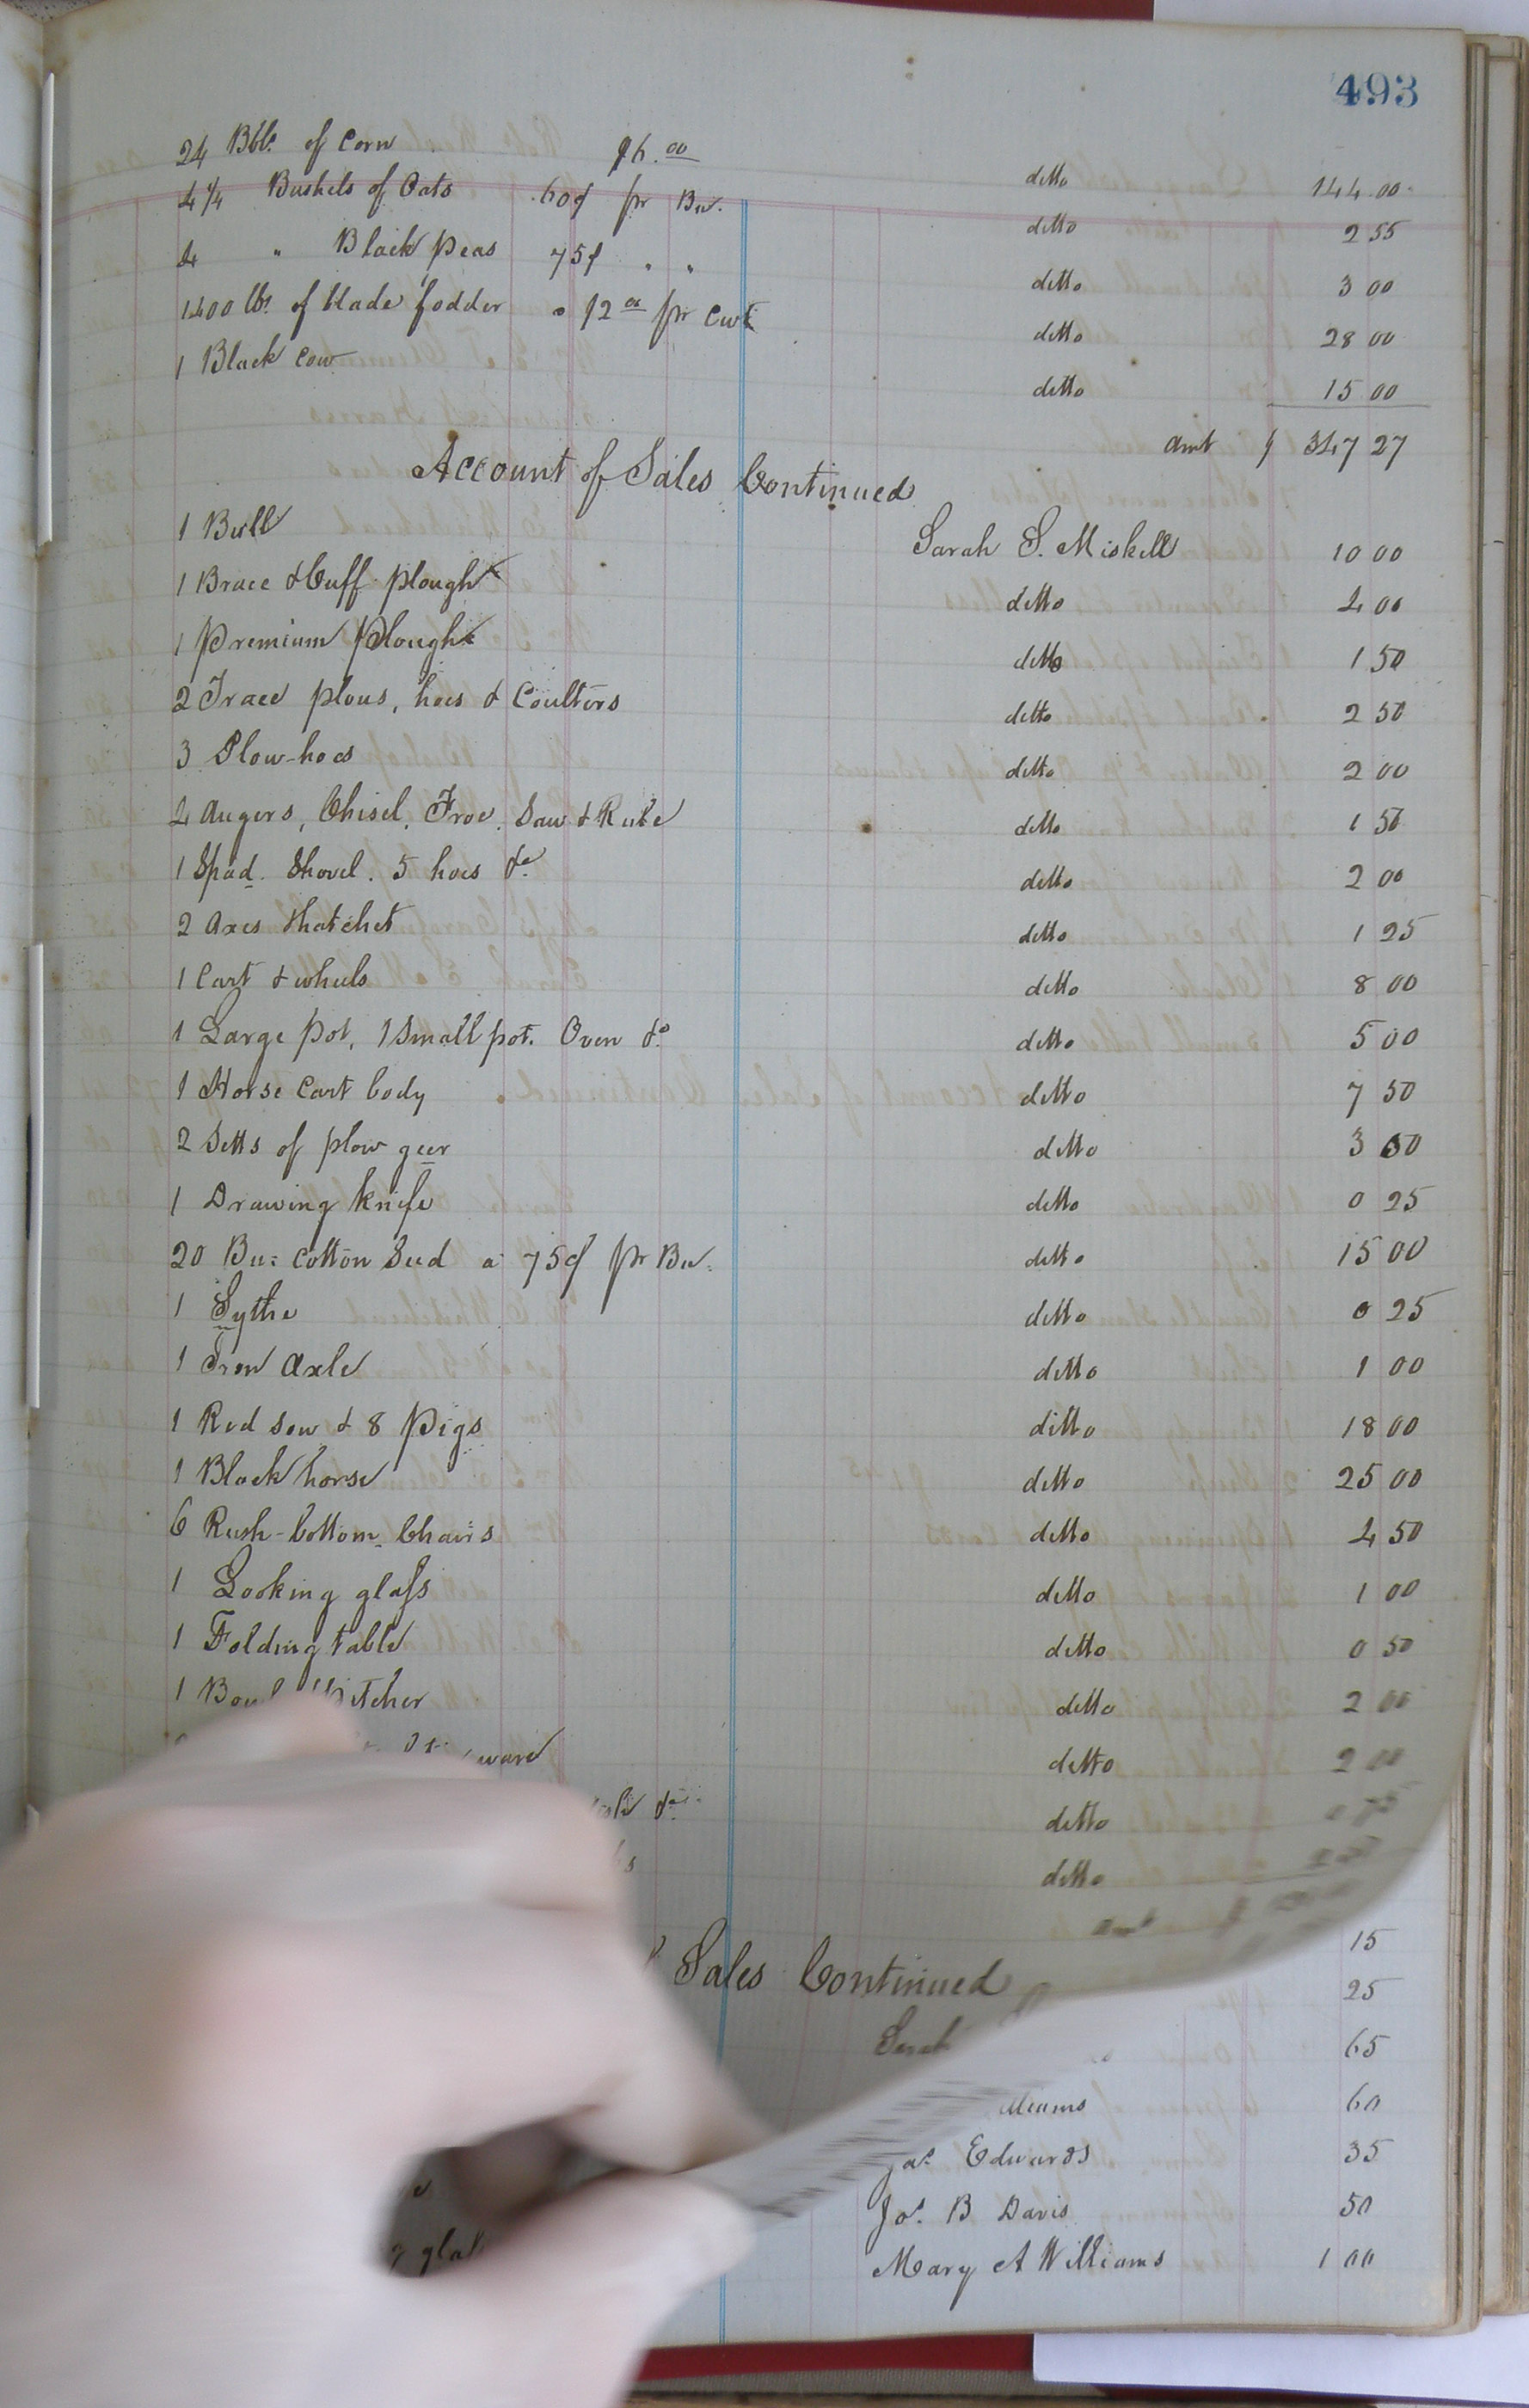 493
24 Bbls of Corn $6.00 ditto 144 00
4 1/4 Bushels of Oats 60¢ pr Bu. ditto 2 55
4 " Black peas 75¢ " " ditto 3 00
1400 lbs of blade fodder @ $2 00 pr Cwt ditto 28 00
1 Black Cow ditto 15 00
amt $ 347 27
Account of Sales Continued
1 Bull Sarah S. Miskell 10 00
1 Brace & Cuff plough ditto 4 00
1 Premium Plough ditto 1 50
2 Trace plous, hoes & Coulters ditto 2 50
3 Plow-hoes ditto 2 00
4 Augers, Chisel, Froe, Saw & Rule ditto 1 50
1 Spad. Shovel. 5 hoes &c ditto 2 00
2 Axes & hatchet ditto 1 25
1 Cart & wheels ditto 8 00
1 Large pot, 1 Small pot. Oven &c ditto 5 00
1 Horse Cart body ditto 7 50
2 Setts of plow geer ditto 3 50
1 Drawing knife ditto 0 25
20 Bu: Cotton Seed a 75¢ pr Bu. ditto 15 00
1 Sythe ditto 0 25
1 Iron Axle ditto 1 00
1 Red Sow & 8 Pigs ditto 18 00
1 Black horse ditto 25 00
6 Rush-bottom Chairs ditto 4 50
1 Looking glass ditto 1 00
1 Folding table ditto 0 50
1 Bowl Pitcher ditto 2 00
ware ditto 2 00
&c ditto
ditto
amt $
Sales Continued
15
25
65
lliams 60
Jas. Edwards 35
Jos. B Davis 50
Mary A Williams 1 00